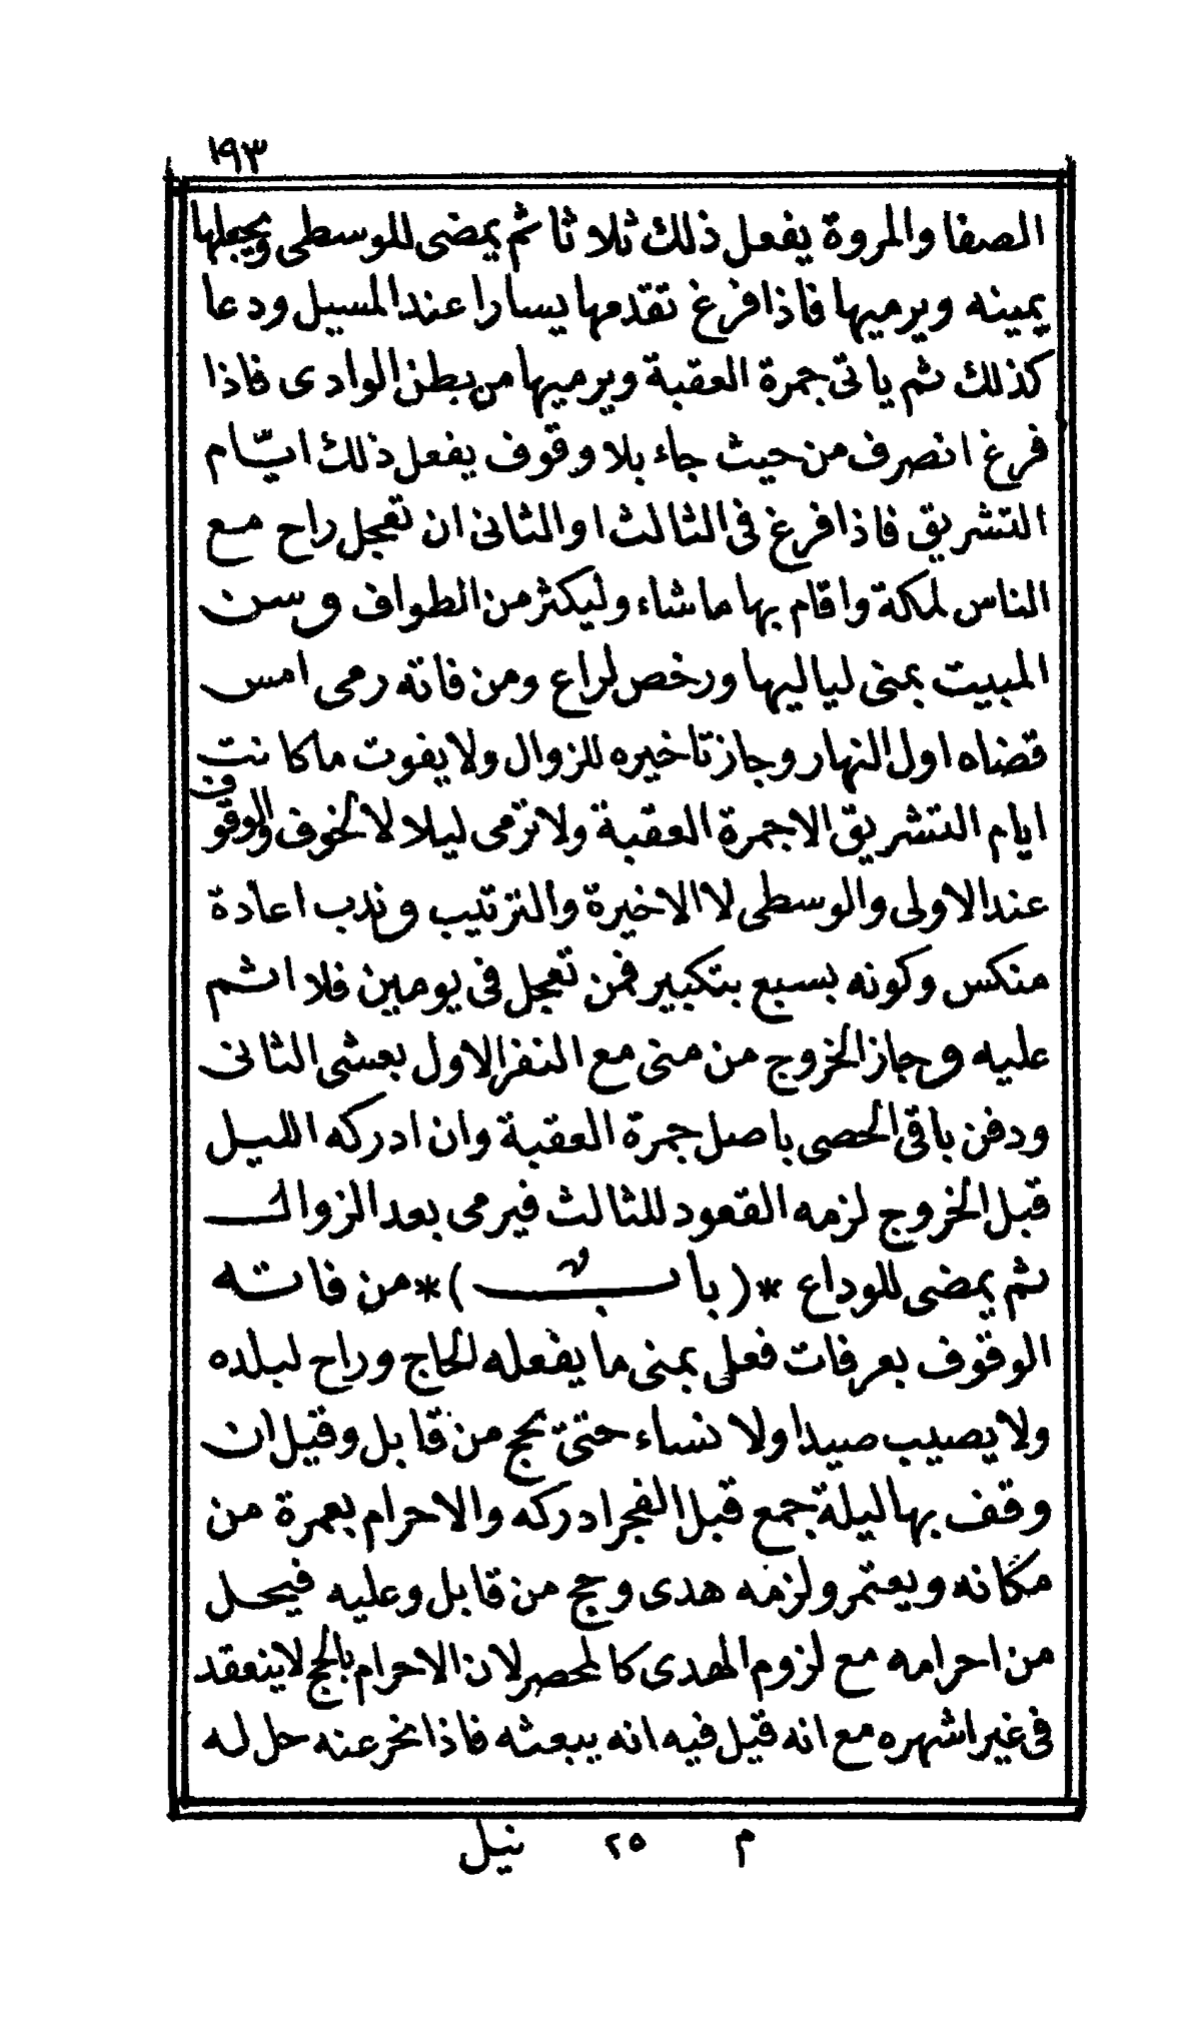 ١٩٣
الصفا والمروة يفعل ذلك ثلاثا ثم يمضى للوسطى ويجعلها
يمينه ويرميها فاذا فرغ تقدمها يسارا عند المسيل ودعا
كذلك ثم ياتى جمرة العقبة ويرميها من بطن الوادى فاذا
فرغ انصرف من حيث جاء بلا وقوف يفعل ذلك ايّام
التشريق فاذا فرغ فى الثالث او الثانى ان تعجل راح مع
الناس لمكة واقام بها ما شاء وليكثر من الطواف وسن
المبيت بمنى لياليها ورخص لراع ومن فاته رمى امس
قضاه اول النهار وجاز تاخيره للزوال ولا يفوت ما كانت
ايام التشريق الا جمرة العقبة ولا ترمى ليلا لا لخوف والوقوف
عند الاولى والوسطى لا الاخيرة والترتيب وندب اعادة
منكس وكونه بسبع بتكبير فمن تعجل فى يومين فلا اثم
عليه وجاز الخروج من منى مع النفر الاول بعشى الثانى
ودفن باقى الحصى باصل جمرة العقبة وان ادركه الليل
قبل الخروج لزمه القعود للثالث فيرمى بعد الزوال
ثم يمضى للوداع *(باب)* من فاته
الوقوف بعرفات فعل بمنى ما يفعله الحاج وراح لبلده
ولا يصيب صيدا ولا نساء حتى يحج من قابل وقيل ان
وقف بها ليلة جمع قبل الفجر ادركه والاحرام بعمرة من
مكانه ويعتمر ولزمه هدى وحج من قابل وعليه فيحل
من احرامه مع لزوم الهدى كالمحصر لان الاحرام بالحج لا ينعقد
فى غير اشهره مع انه قيل فيه انه يبعثه فاذا نحر عنه حل له
م ٢٥ نيل